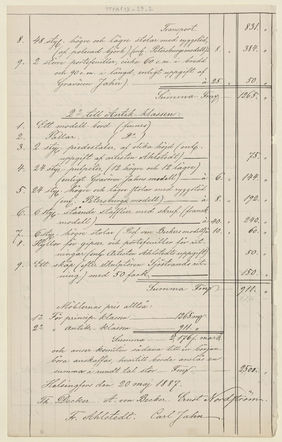 Transport 831.
8. 48 styg. högre och lägre stolar med ryggstöd
8. 384.
9. 2 större portefeuiller, cirka 60 c.m. i bredd
och 90 c.m. i längd, enligt uppgift af
Gravören Jahn) à 25 50.
Summa Fmg 1265.
2º till Antik-klassen:
1. Ett modell-bord
2. Pallar
3. 2 styg. piedestaler, af olika höjd (enl.
uppgift af artisten Ahlstedt) 75.
4. 24 styg. pulpeter, (12 högre och 12 lägre)
(enligt Gravören Jahns modell) à 6. 144.
5. 24 styg. högre och lägre stolar med ryggstöd
(enl. Petersburgs modell) à 8. 192.
6. 6 styg. stående stafflier med skruf (fransk
modell) à 40. 240.
7. 6 styg. högre stolar (Prof. von Beckers modell) à 10. 60.
8. Hyllor för gipser och portefeuiller för rit-
ningar (enl. Artisten Ahlstedts uppgift) 50.
9. Ett skåp (efter Skulptören Sjöstrands rit-
ning) med 50 fack 150.
Summa Fmg 911.
Möblernas pris alltså:
1º För princip klassen 1265 mg
2º " Antik-klassen 911 "
Summa 2,176 mark
och anser komitén sådana till en början
böra anskaffas, hvartill borde anslås en
summa i rundt tal stor Fmg 2500.
Helsingfors den 20 maj 1887.
Th. Decker. A. von Becker. Ernst Nordström.
Fr. Ahlstedt. Carl Jahn.